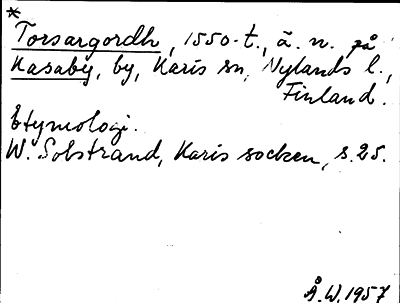 *
Torsargordh, 1550-t., ä. n. på
Kasaby, by, Karis sn, Nylands l.,
Finland.
Etymologi.
W. Solstrand, Karis socken, s. 25.
Å. W. 1957